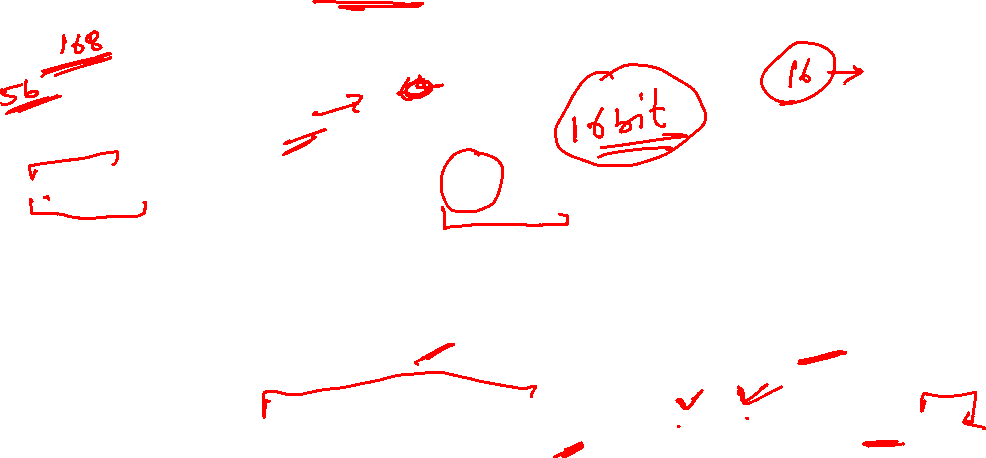 168
56
16 bit
16